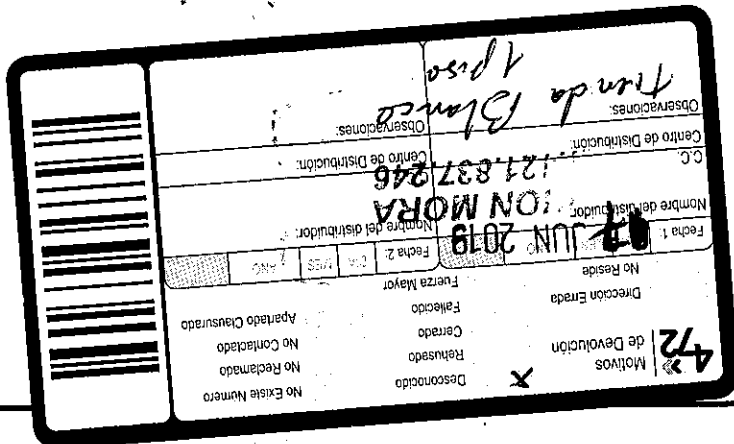 472
Motivos de Devolución
X Desconocido
Rehusado
Cerrado
Fallecido
Fuerza Mayor
No Existe Número
No Reclamado
No Contactado
Apartado Clausurado
Dirección Errada
No Reside
Fecha 1:
JUN 2019
Fecha 2: DIA MES AÑO
Nombre del distribuidor:
ION MORA
Nombre del distribuidor:
C.C.
121.837.246
Centro de Distribución:
Centro de Distribución:
Observaciones:
Tienda Blanco
1 piso
Observaciones: